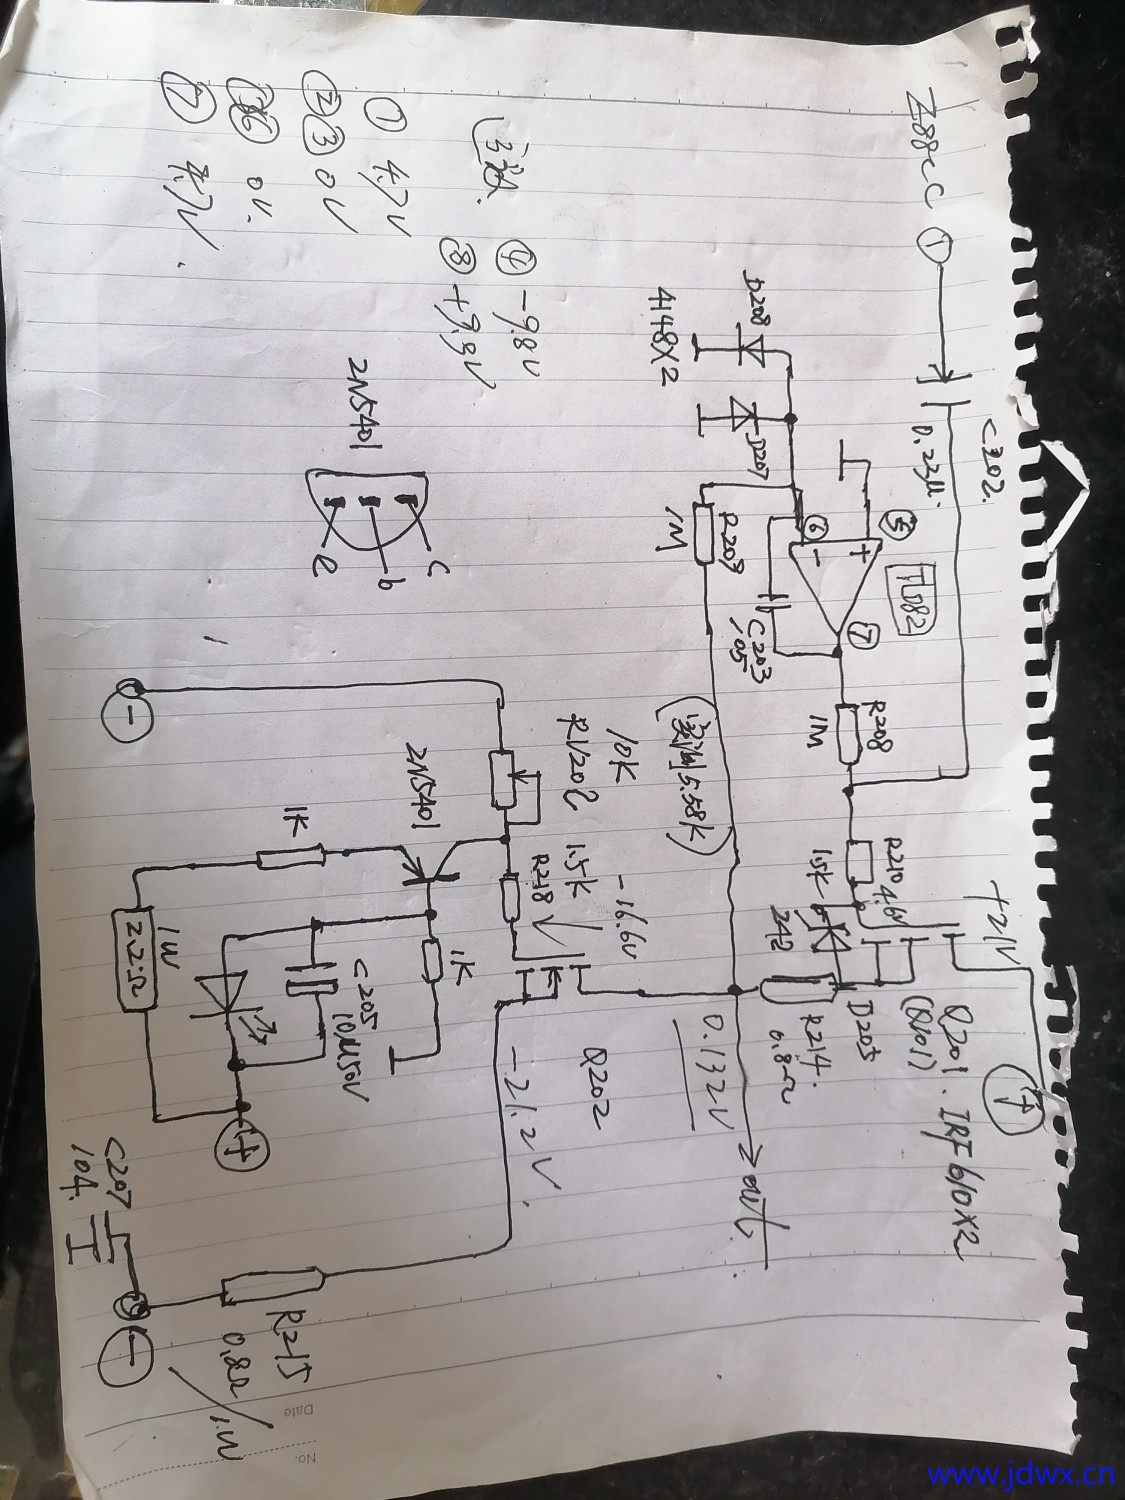 Z88CC ①
C202.
0.22μ.
D208
4148X2
D207
⑤
TL082
+
⑥
−
⑦
C203
.05
R209
1M
R208
1M
R210
1.5K
4.6V
+21V
⊕
Q201. IRF610X2
(Q101)
D205
R214.
0.8Ω
(实测5.58K)
0.132V
out
10K
RV202
1.5K
R218
-16.6V
Q202
-21.2V
2N5401
1K
1K
1W
22Ω
C205
10μ50V
⊕
⊖
R215
0.8Ω/1W
C207
104.
⊖
④ -9.8V
⑧ +9.9V
① 4.7V
②③ 0V
0V.
⑦ 4.7V.
2N5401
c
b
e
Date
No.
www.jdwx.cn